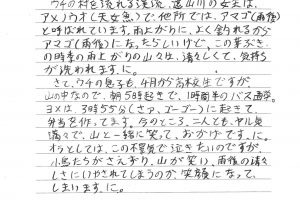 ウチの村を流れる渓流、遠山川の女王は、
アメノウオ(天女魚)で、他所では、アマゴ(雨後)
と呼ばれています。雨上がりに、よく釣れるから
アマゴ(雨後)になったらしいけど、この芽ぶき
の時季の雨上がりの山々は、清々しくて、気持ち
が洗われますに。
さて、ウチの息子も、4月から高校生ですが
山の中なので、朝5時起きで、1時間半のバス通学。
ヨメは、3時55分(さァ、ゴーゴー)に起きて、
弁当を作ってます。今のところ、二人とも、ヤル気
満々で、山と一緒に笑って、おかげですに。
オラとしては、この不景気で泣きたいのですが、
小鳥たちがさえずり、山が笑い、雨後の清々
しさにいやされてしまうのか、笑顔になって、
しまいますに。